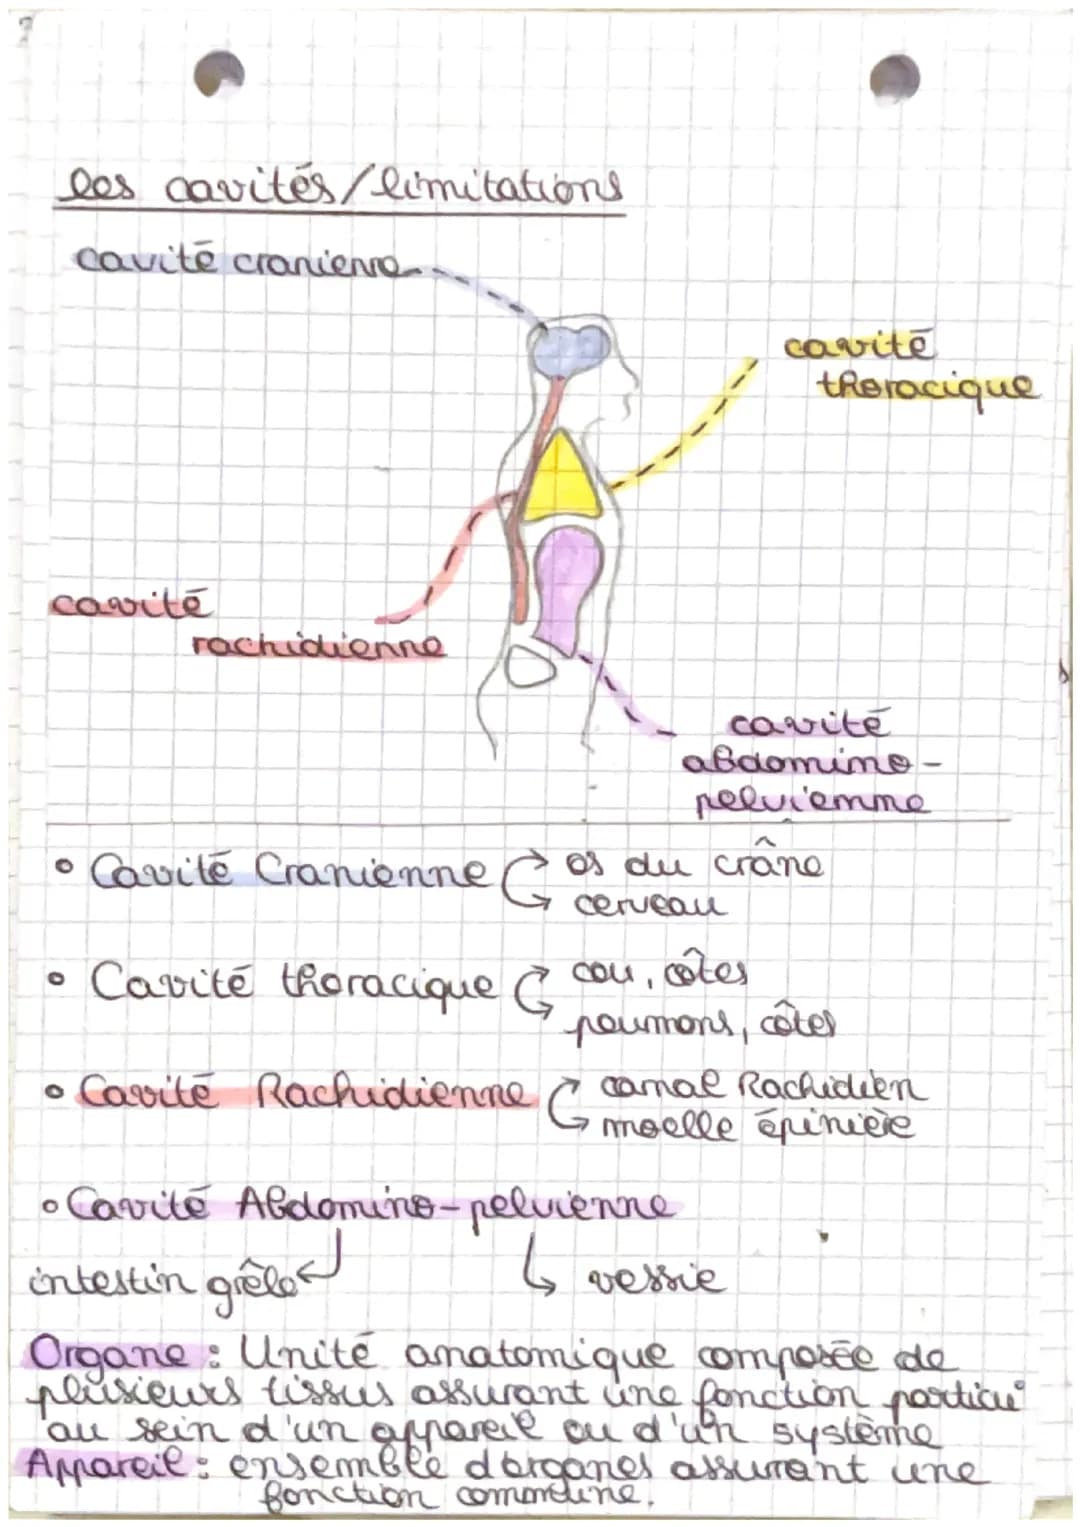 les cavités/limitations
cavité cranienne
cavité
thoracique
cavité
rachidienne
cavité
abdomino-
pelvienne
• Cavité Cranienne → os du crâne
→ cerveau
• Cavité thoracique → cou, côtes
→ poumons, côtes
• Cavité Rachidienne → canal Rachidien
→ moelle épinière
• Cavité Abdomino-pelvienne
intestin grêle ↲ ↳ vessie
Organe : Unité anatomique composée de
plusieurs tissus assurant une fonction particu
au sein d'un appareil ou d'un système
Appareil : ensemble d'organes assurant une
fonction commune.